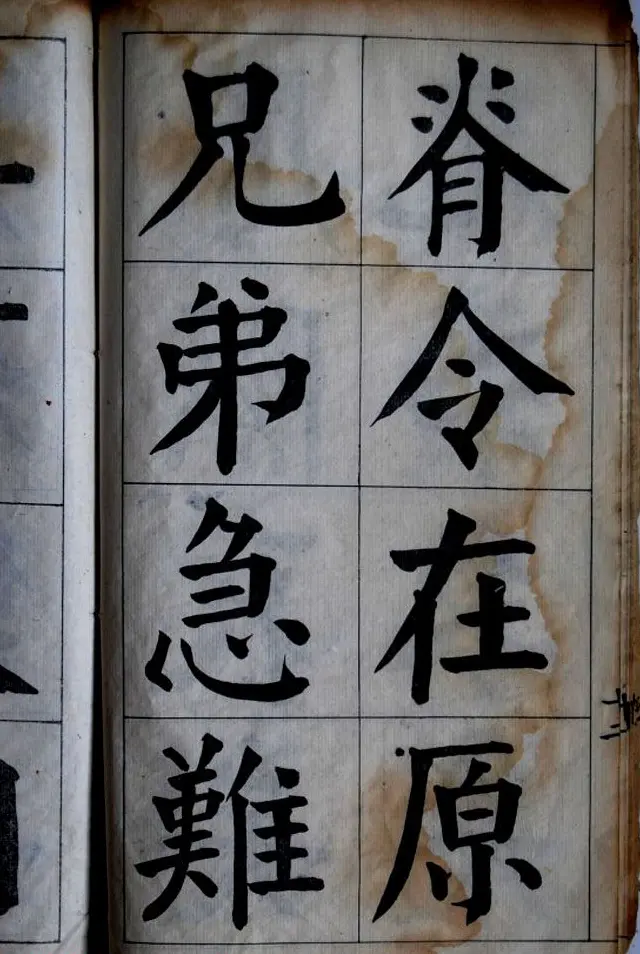 脊令在原
兄弟急難